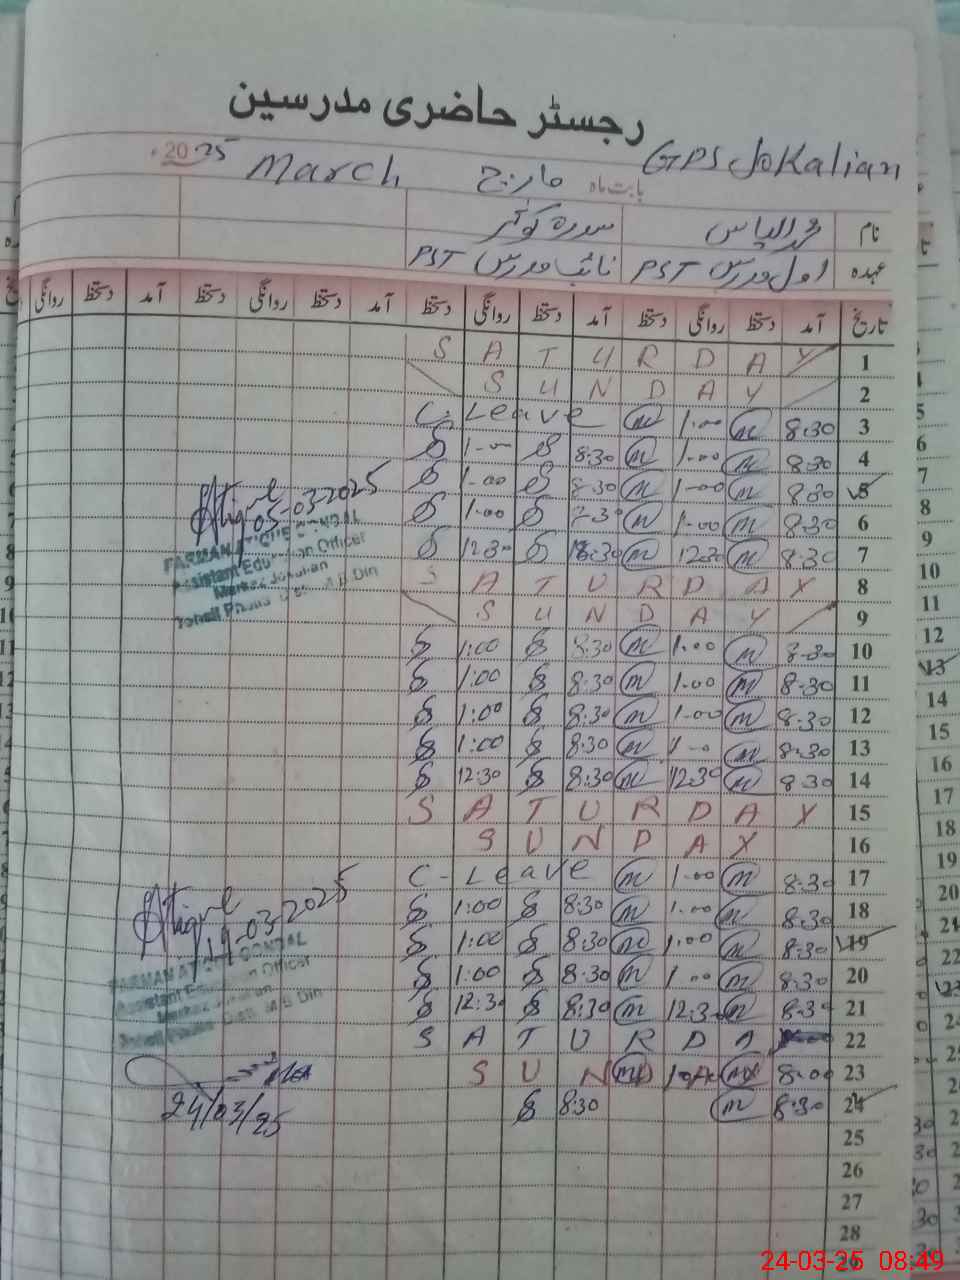 رجسٹر حاضری مدرسین
GPS Jokalian بابت ماہ مارچ March 2025
نام محمد الیاس سدرہ کوثر
عہدہ اول مدرس PST نائب مدرس PST
تاریخ آمد دستخط روانگی دستخط آمد دستخط روانگی دستخط آمد دستخط روانگی دستخط آمد دستخط روانگی
S A T U R D A Y 1
S U N D A Y 2
C. Leave m 1.00 m 8.30 3
1.00 8.30 m 1.00 m 8.30 4
1.00 8.30 m 1.00 m 8.30 5
1.00 m 1.00 m 8.30 6
12.30 8.30 m 12.30 m 8.30 7
Atique
05-03-2025
FARMAN ATIQUE GONDAL
Assistant Education Officer
Markaz Jokalian
M.B.Din
S A T U R D A Y 8
S U N D A Y 9
1:00 8.30 m 1.00 m 8.30 10
1:00 8.30 m 1.00 m 8.30 11
1:00 8.30 m 1.00 m 8.30 12
1:00 8.30 m m 8.30 13
12:30 8.30 m 12.30 m 8.30 14
S A T U R D A Y 15
S U N D A Y 16
C- Leave m 1.00 m 8.30 17
1:00 8.30 m 1.00 m 8.30 18
1:00 8:30 m 1.00 m 8.30 19
1:00 8:30 m 1.00 m 8.30 20
12.30 8:30 m 12.30 m 8.30 21
Atique
19-03-2025
FARMAN ATIQUE GONDAL
Assistant Education Officer
Markaz Jokalian
M.B.Din
S A T U R D A 22
S U N D A Y m m 8.00 23
8:30 m 8.30 24
MEA
24/03/25
25
26
27
28
29
24-03-25 08:49